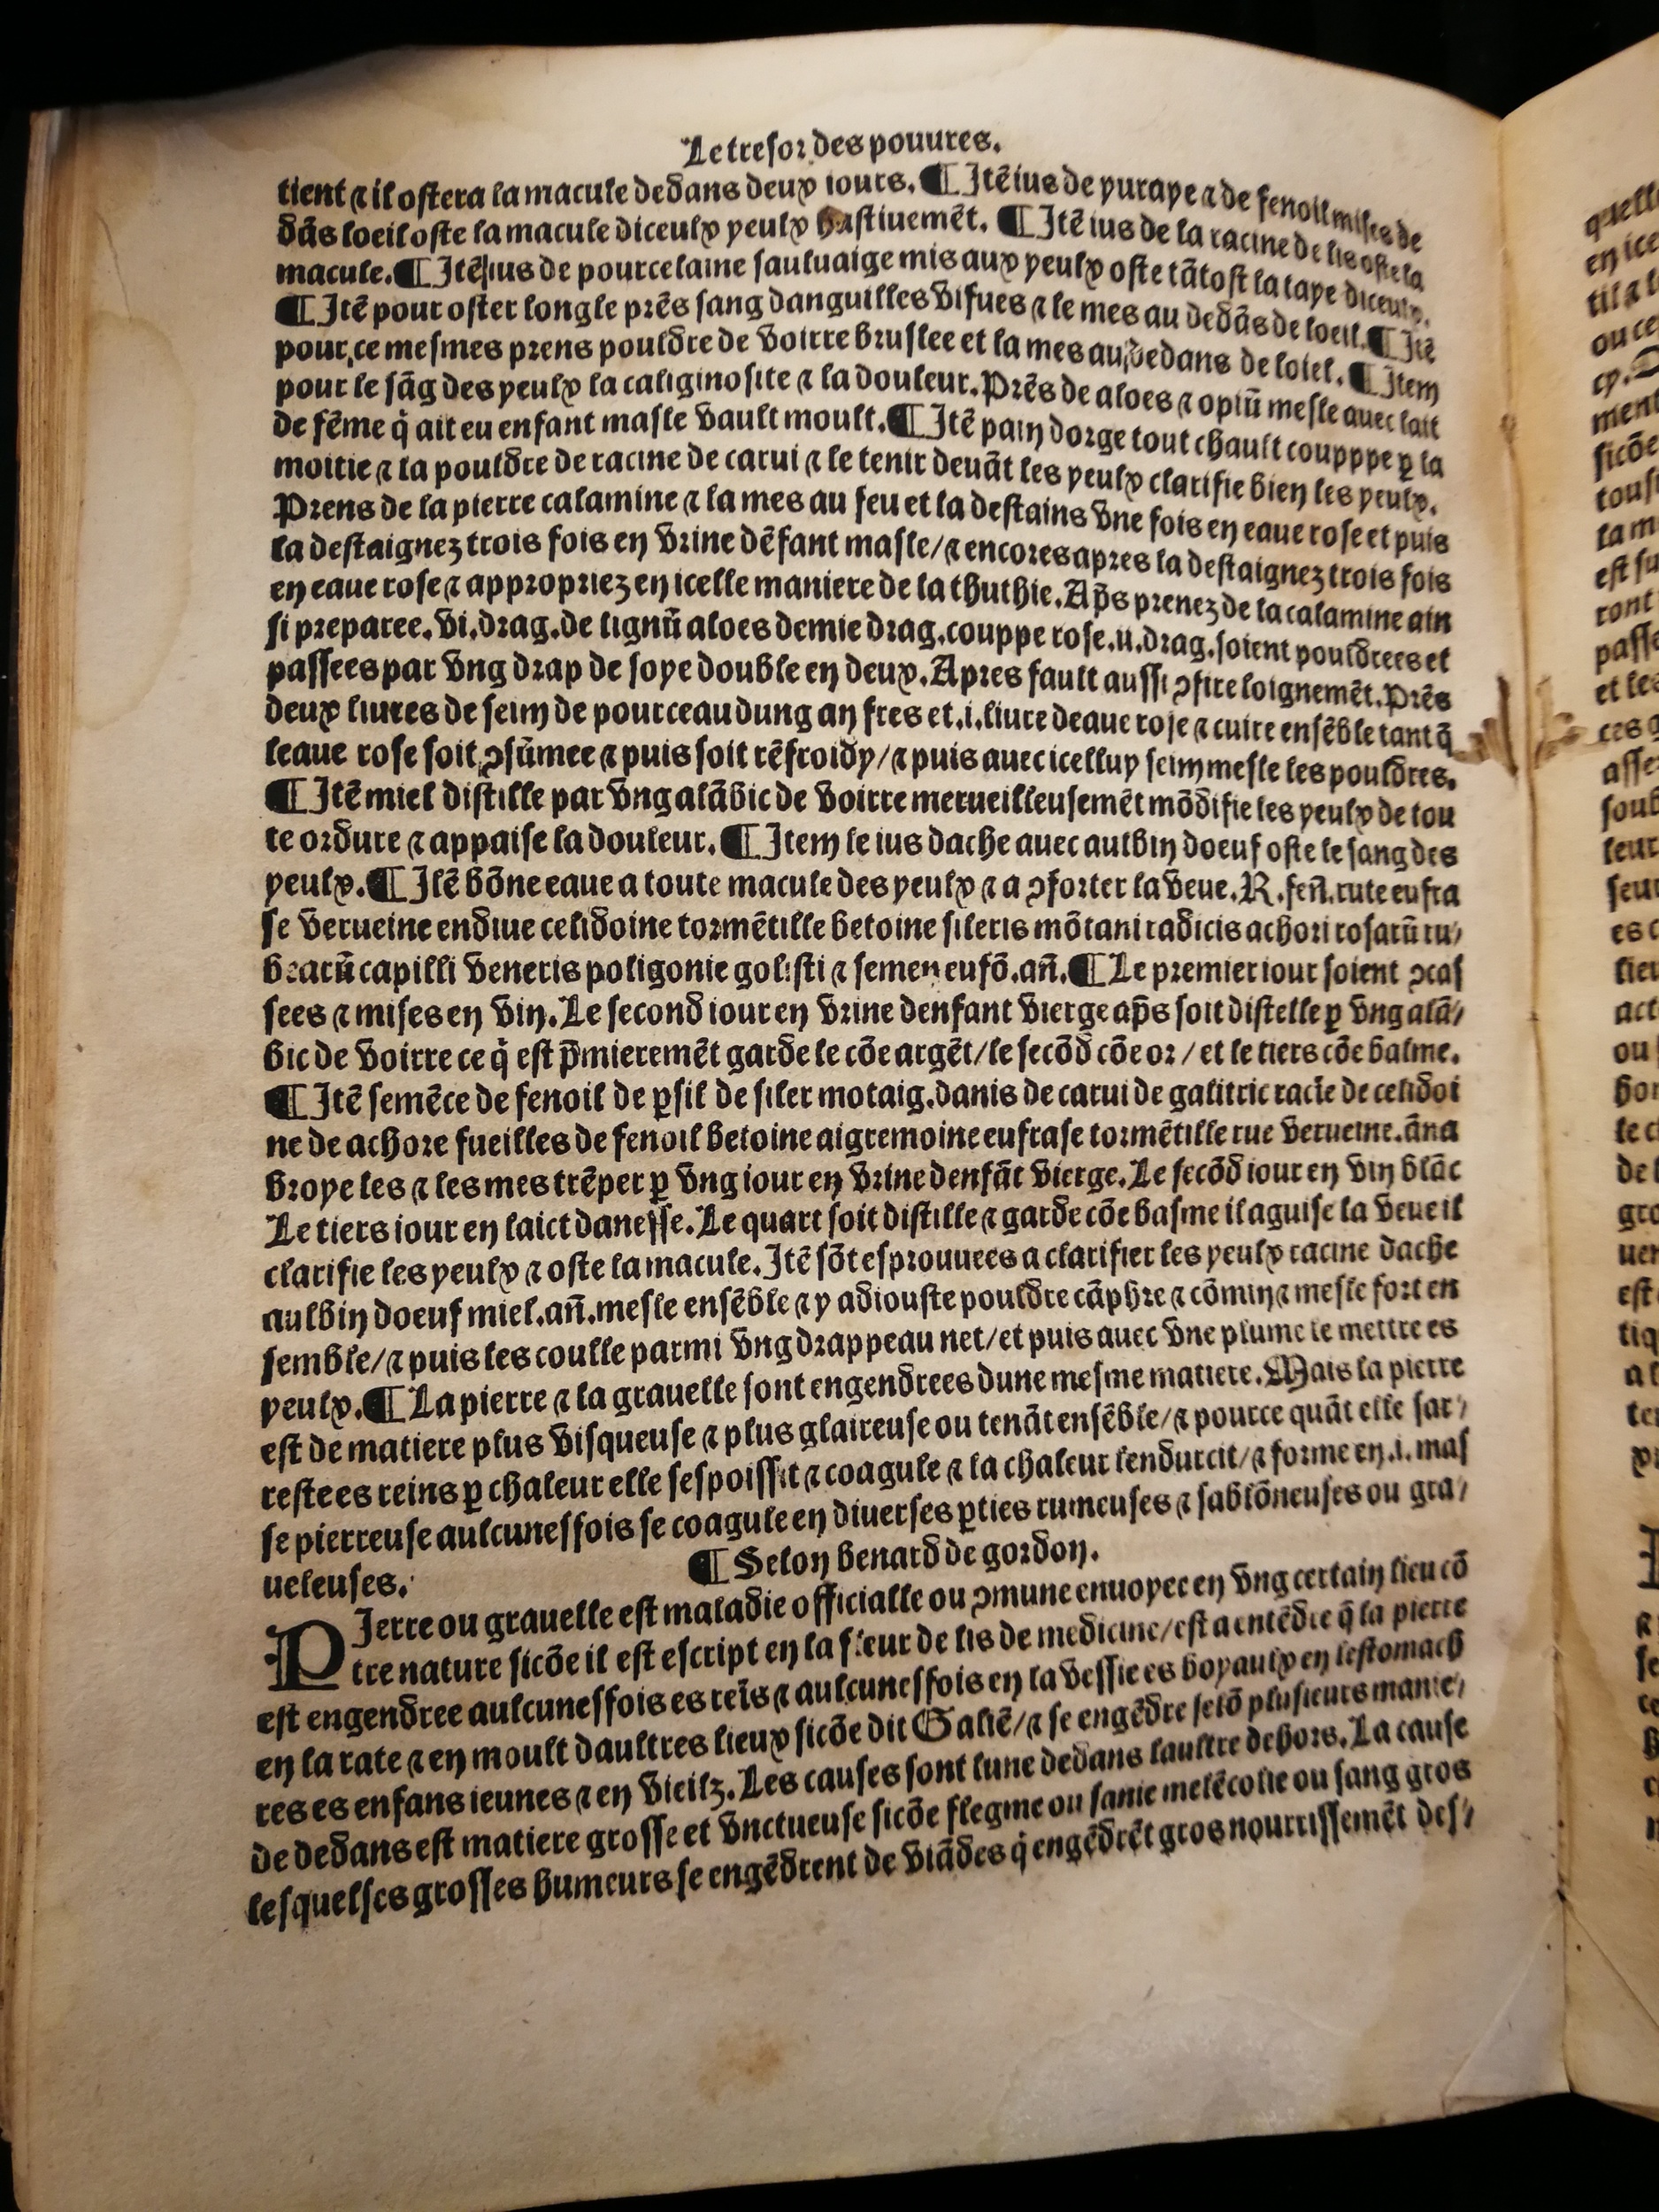 Le tresor des pouures.
tient ⁊ il ostera la macule dedans deux iours. ¶ Itē ius de yuraye ⁊ de fenoil mises de
dās loeil oste la macule diceulx yeulx hastiuemēt. ¶ Itē ius de la racine de lis oste la
macule. ¶ Itē ius de pourcelaine sauluaige mis aux yeulx oste tātost la taye diceulx.
¶ Itē pour oster longle prēs sang danguilles vifues ⁊ le mes au dedās de loeil. ¶ Itē
pour ce mesmes prens pouldre de voirre bruslee et la mes au dedans de loiel. ¶ Item
pour le sāg des yeulx la caliginosite ⁊ la douleur. Prēs de aloes ⁊ opiū mesle auec lait
de fēme q̇ ait eu enfant masle vault moult. ¶ Itē pain dorge tout chault coupppe ꝑ la
moitie ⁊ la pouldre de racine de carui ⁊ le tenir deuāt les yeulx clarifie bien les yeulx.
Prens de la pierre calamine ⁊ la mes au feu et la destains vne fois en eaue rose et puis
la destaignez trois fois en vrine dēfant masle/⁊ encores apres la destaignez trois fois
en eaue rose ⁊ appropriez en icelle maniere de la thuthie. Ap̄s prenez de la calamine ain
si preparee. vi. drag. de lignū aloes demie drag. couppe rose. ii. drag. soient pouldrees et
passees par vng drap de soye double en deux. Apres fault aussi ↄfire loignemēt. Prēs
deux liures de seim de pourceau dung an fres et .i. liure deaue rose ⁊ cuire ensēble tant q̄
leaue rose soit ↄsūmee ⁊ puis soit rēfroidy/⁊ puis auec icelluy seim mesle les pouldres.
¶ Itē miel distille par vng alābic de voirre merueilleusemēt mōdifie les yeulx de tou
te ordure ⁊ appaise la douleur. ¶ Item le ius dache auec aulbin doeuf oste le sang des
yeulx. ¶ Itē bōne eaue a toute macule des yeulx ⁊ a ↄforter la veue. R. fen̄. rute eufra
se verueine endiue celidoine tormētille betoine sileris mōtani radicis achori rosarū ru/
brarū capilli veneris poligonie golisti ⁊ semen eufō. an̄. ¶ Le premier iour soient ↄcas
sees ⁊ mises en vin. Le second iour en vrine denfant vierge ap̄s soit distelle ꝑ vng alā/
bic de voirre ce q̇ est p̄mieremēt garde le cōe argēt/le secōd cōe or/et le tiers cōe balme.
¶ Itē semēce de fenoil de ꝑsil de siler motaig. danis de carui de galitric racīe de celidoi
ne de achore fueilles de fenoil betoine aigremoine eufrase tormētille rue verueine. āna
broye les ⁊ les mes trēper ꝑ vng iour en vrine denfāt vierge. Le secōd iour en vin blāc
Le tiers iour en laict danesse. Le quart soit distille ⁊ garde cōe basme il aguise la veue il
clarifie les yeulx ⁊ oste la macule. Itē sōt esprouuees a clarifier les yeulx racine dache
aulbin doeuf miel. an̄. mesle ensēble ⁊ y adiouste pouldre cāphre ⁊ cōmin ⁊ mesle fort en
semble/⁊ puis les coulle parmi vng drappeau net/et puis auec vne plume le mettre es
yeulx. ¶ La pierre ⁊ la grauelle sont engendrees dune mesme matiere. Mais la pierre
est de matiere plus visqueuse ⁊ plus glaireuse ou tenāt ensēble/⁊ pource quāt elle sar/
reste es reins ꝑ chaleur elle sespoissit ⁊ coagule ⁊ la chaleur lendurcit/⁊ forme en .i. mas
se pierreuse aulcuneffois se coagule en diuerses ꝑties rumeuses ⁊ sablōneuses ou gra/
ueleuses.
¶ Selon benard de gordon.
PIerre ou grauelle est maladie officialle ou ↄmune enuoyee en vng certain lieu cō
tre nature sicōe il est escript en la fleur de lis de medicine/est a entēdre q̄ la pierre
est engendree aulcuneffois es reīs ⁊ aulcuneffois en la vessie es boyaulx en lestomach
en la rate ⁊ en moult daultres lieux sicōe dit Galiē/⁊ se engēdre selō plusieurs manie/
res es enfans ieunes ⁊ en vieilz. Les causes sont lune dedans laultre dehors. La cause
de dedans est matiere grosse et vnctueuse sicōe flegme ou sanie melēcolie ou sang gros
lesquelses grosses humeurs se engēdrent de viādes q̇ engēdrēt gros nourrissemēt des/